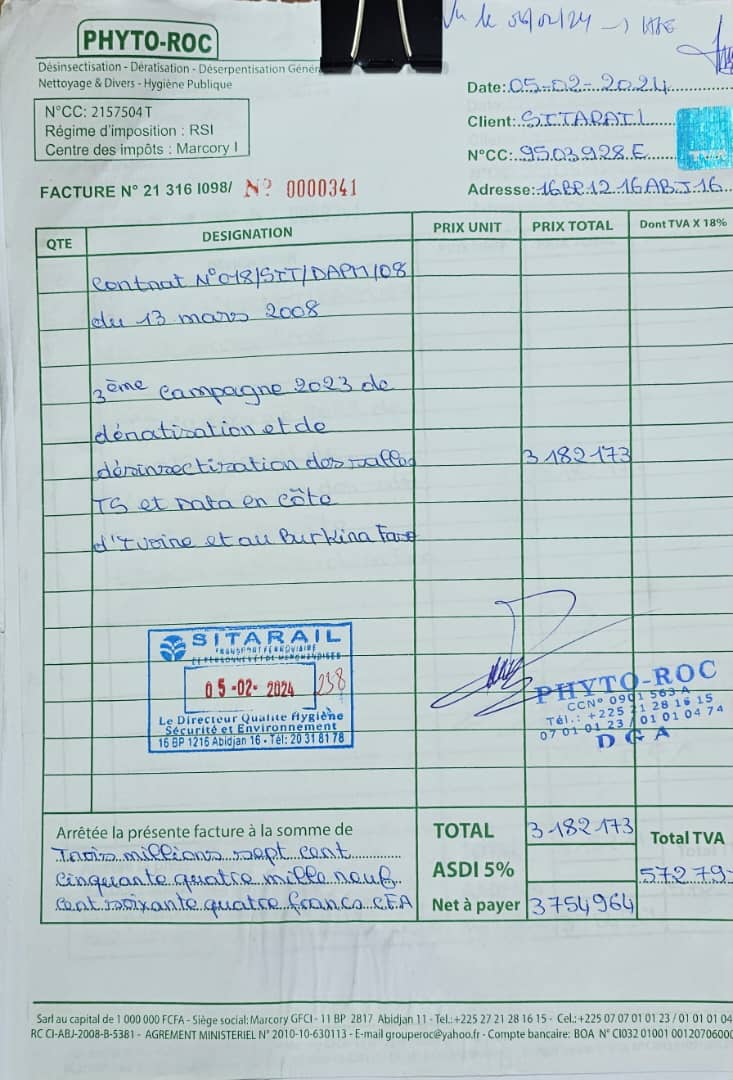 Vu le 06/02/24 →
PHYTO-ROC
Désinsectisation - Dératisation - Déserpentisation Génér
Nettoyage & Divers - Hygiène Publique
N°CC: 2157504 T
Régime d'imposition : RSI
Centre des impôts : Marcory I
Date: 05-02-2024
Client: SITARAIL
N°CC: 9503928 E
Adresse: 16BP 12 16 ABJ 16
TVA
FACTURE N° 21 316 I098/ N° 0000341
QTE DESIGNATION PRIX UNIT PRIX TOTAL Dont TVA X 18%
Contrat N°018/STT/DAPM/08
du 13 mars 2008
3ème Campagne 2023 de
dératisation et de
désinsectisation des salles 3 182 173
TS et Data en Côte
d'Ivoire et au Burkina Faso
SITARAIL
TRANSPORT FERROVIAIRE
DE PERSONNES ET DE MARCHANDISES
05-02-2024 238
Le Directeur Qualité Hygiène
Sécurité et Environnement
16 BP 1216 Abidjan 16 - Tél: 20 31 81 78
PHYTO-ROC
CCN° 0901 563 A
Tél.: +225 21 28 16 15
07 01 01 23 / 01 01 04 74
DGA
Arrêtée la présente facture à la somme de
Trois millions sept cent
cinquante quatre mille neuf
cent soixante quatre francs CFA
TOTAL 3 182 173 Total TVA
ASDI 5% 572 79
Net à payer 3754964
Sarl au capital de 1 000 000 FCFA - Siège social: Marcory GFCI - 11 BP 2817 Abidjan 11 - Tel.: +225 27 21 28 16 15 - Cel.: +225 07 07 01 01 23 / 01 01 01 04
RC CI-ABJ-2008-B-5381 - AGREMENT MINISTERIEL N° 2010-10-630113 - E-mail grouperoc@yahoo.fr - Compte bancaire: BOA N° CI032 01001 00120706000